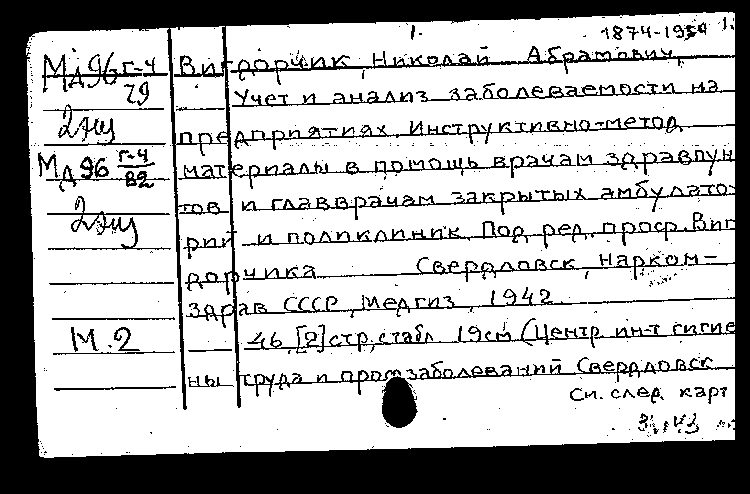 1.
1874-1954
Мд96 г-4 Вигдорчик, Николай Абрамович,
79 Учет и анализ заболеваемости на
2 экз предприятиях. Инструктивно-метод
Мд 96 г-4 материалы в помощь врачам здравпун
82 тов и главврачам закрытых амбулато-
2 экз рий и поликлиник. Под ред. проф. Виг
дорчика Свердловск, Нарком-
здрав СССР, Медгиз, 1942.
М.2 46, [2] стр., с табл. 19см (Центр. ин-т гигие
ны труда и профзаболеваний Свердловск
См. след карт